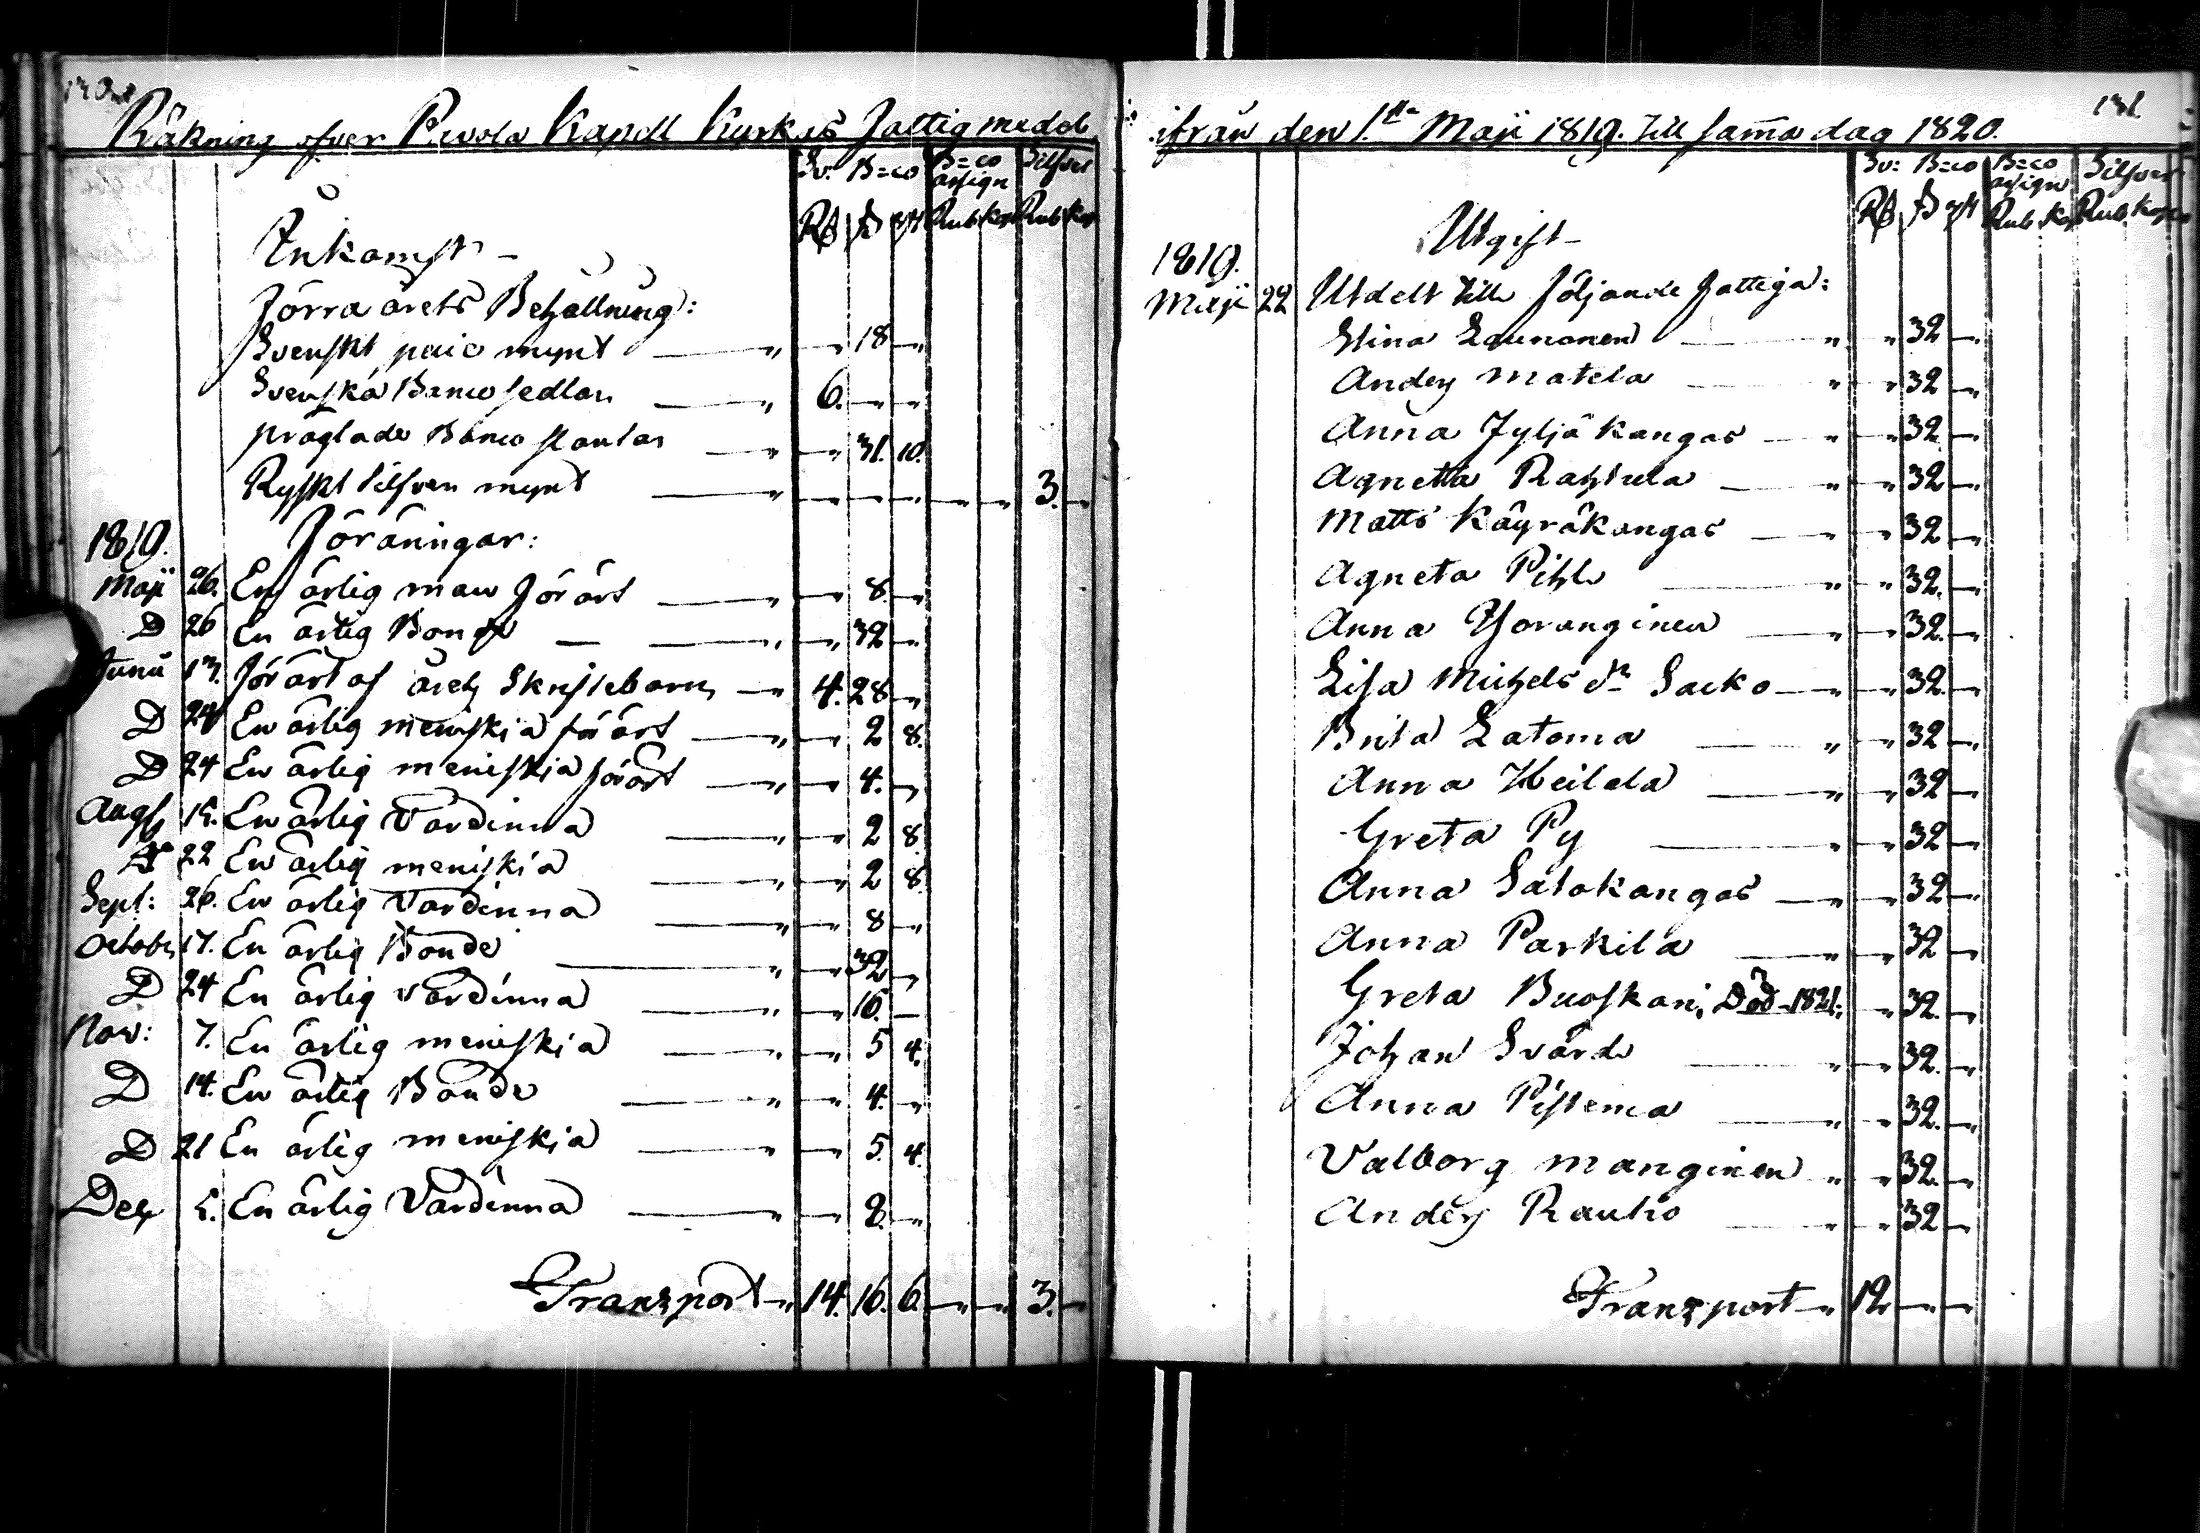 130.
Räkning öfver Piwola Kapell Kyrkas Fattig medel
Sv: B=co B=co assign Silfver
Inkomst
Rd ß rst Rub kop Rub kop
Förra årets Behållning:
Svenskt paie mynt — „ — 18 —
Svenska Banco sedlar — „ 6. — —
präglade Banco slantar — „ — 31. 10.
Ryskt Silfver mynt — „ — — — — — 3. —
1819. Föräningar:
Maji 26. En ärlig man förärt — „ — 8. —
D 26 En ärlig Bonde — „ — 32 —
Junii 13. Förärt af årets Skriftebarn — „ 4. 28 —
D 24 En ärlig meniskia förärt — „ — 2 8.
D 24 En ärlig meniskia förärt — „ — 4. —
Aug 15. En ärlig Värdinna — „ — 2 8.
D 22 En ärlig meniskia — „ — 2 8.
Sept: 26. En ärlig Värdinna — „ — 8 —
October 17. En ärlig Bonde — „ — 32 —
D 24 En ärlig värdinna — „ — 16. —
Nov: 7. En ärlig meniskia — „ — 5 4.
D 14. En ärlig Bonde — „ — 4. —
D 21 En ärlig meniskia — „ — 5. 4.
Dec 5. En ärlig Värdinna — „ — 8. —
Transport — „ 14. 16. 6. — — 3. —
131.
ifrån den 1.sta Maji 1819. till samma dag 1820.
Sv: B=co B=co assign Silfver
Rd ß rst Rub kop Rub kop
Utgift —
1819.
Maji 22 Utdelt till följande fattiga:
Stina Launonen — „ — 32 —
Anders Matela — „ — 32 —
Anna Jyljäkangas — „ — 32 —
Agnetta Rahtula — „ — 32 —
Matts Käyräkangas — „ — 32 —
Agneta Pihl — „ — 32. —
Anna Yoranginen — „ — 32. —
Lisa Michels dr Sacko — „ — 32. —
Brita Latoma — „ — 32 —
Anna Heilala — „ — 32 —
Greta Py — „ — 32 —
Anna Salokangas — „ — 32 —
Anna Parkila — „ — 32 —
Greta Buoskari, Död 1821. „ — 32. —
Johan Svärd — „ — 32. —
Anna Pistema — „ — 32. —
Valborg Manginen „ — 32. —
Anders Rautio — „ — 32 —
Transport — „ 12 — —